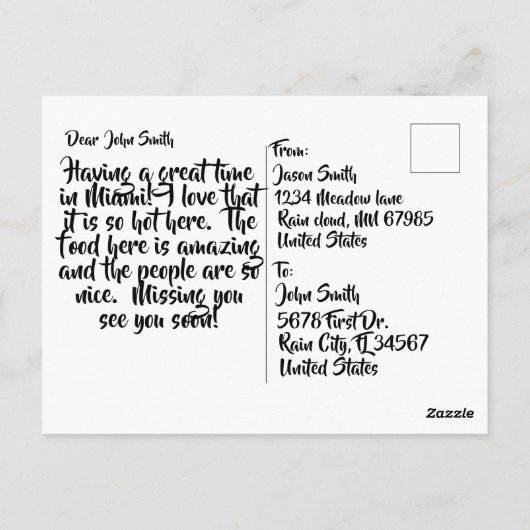 Dear John Smith
Having a great time
in Miami! I love that
it is so hot here. The
food here is amazing
and the people are so
nice. Missing you
see you soon!
From:
Jason Smith
1234 Meadow lane
Rain cloud, MN 67985
United States
To:
John Smith
5678 First Dr.
Rain City, FL 34567
United States
Zazzle